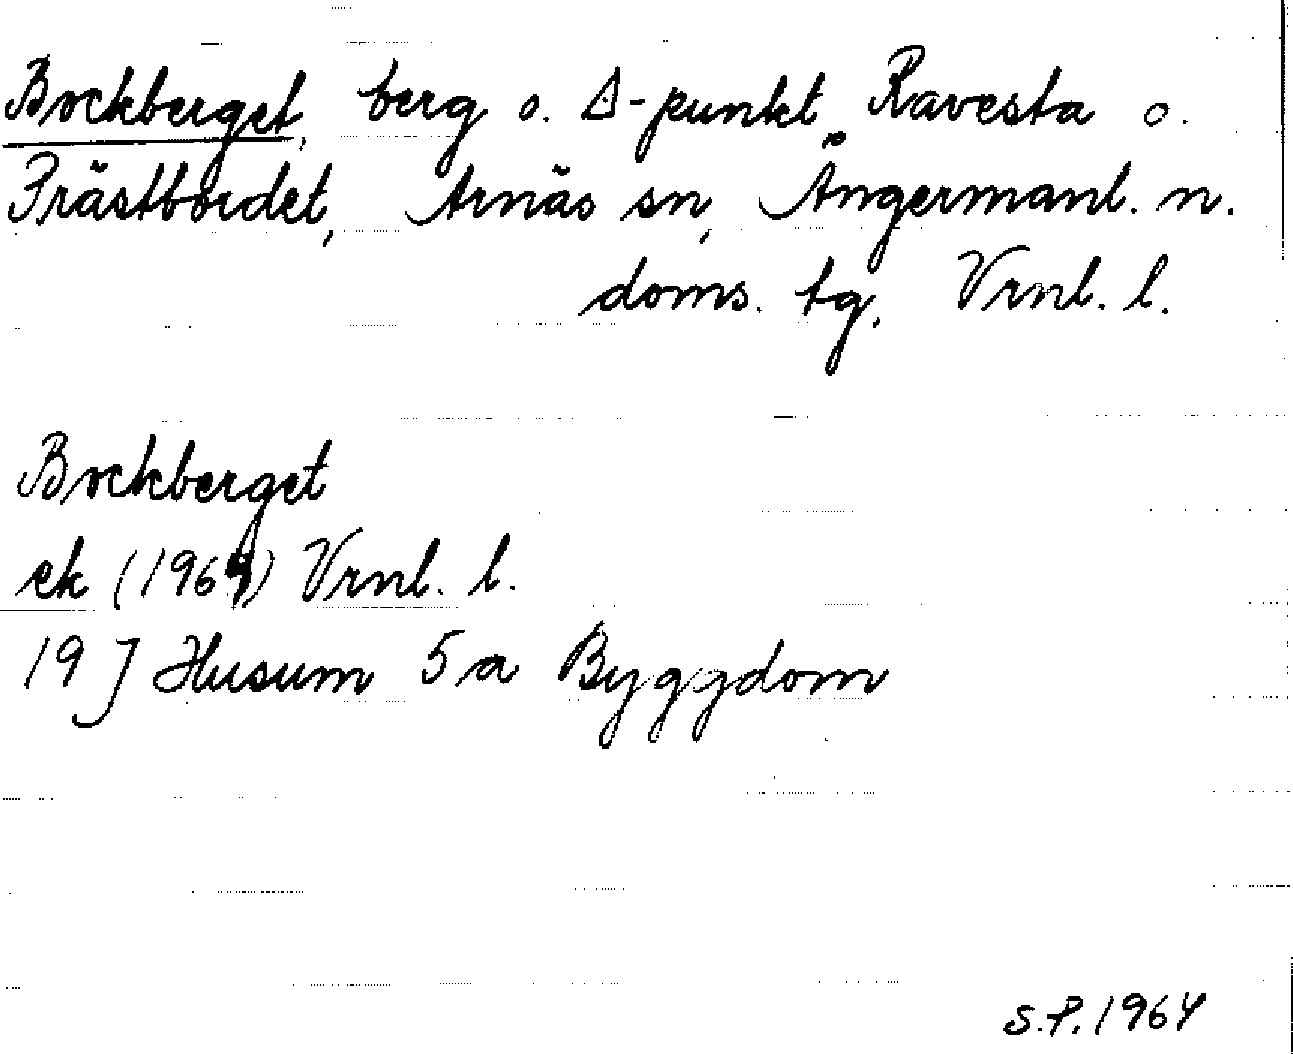 Bockberget, berg o. Δ-punkt, Ravesta o.
Prästbordet, Arnäs sn, Ångermanl. n.
doms. tg, Vrnl. l.
Bockberget
ek (1964) Vrnl. l.
19 J Husum 5 a Byggdom
S.P. 1964